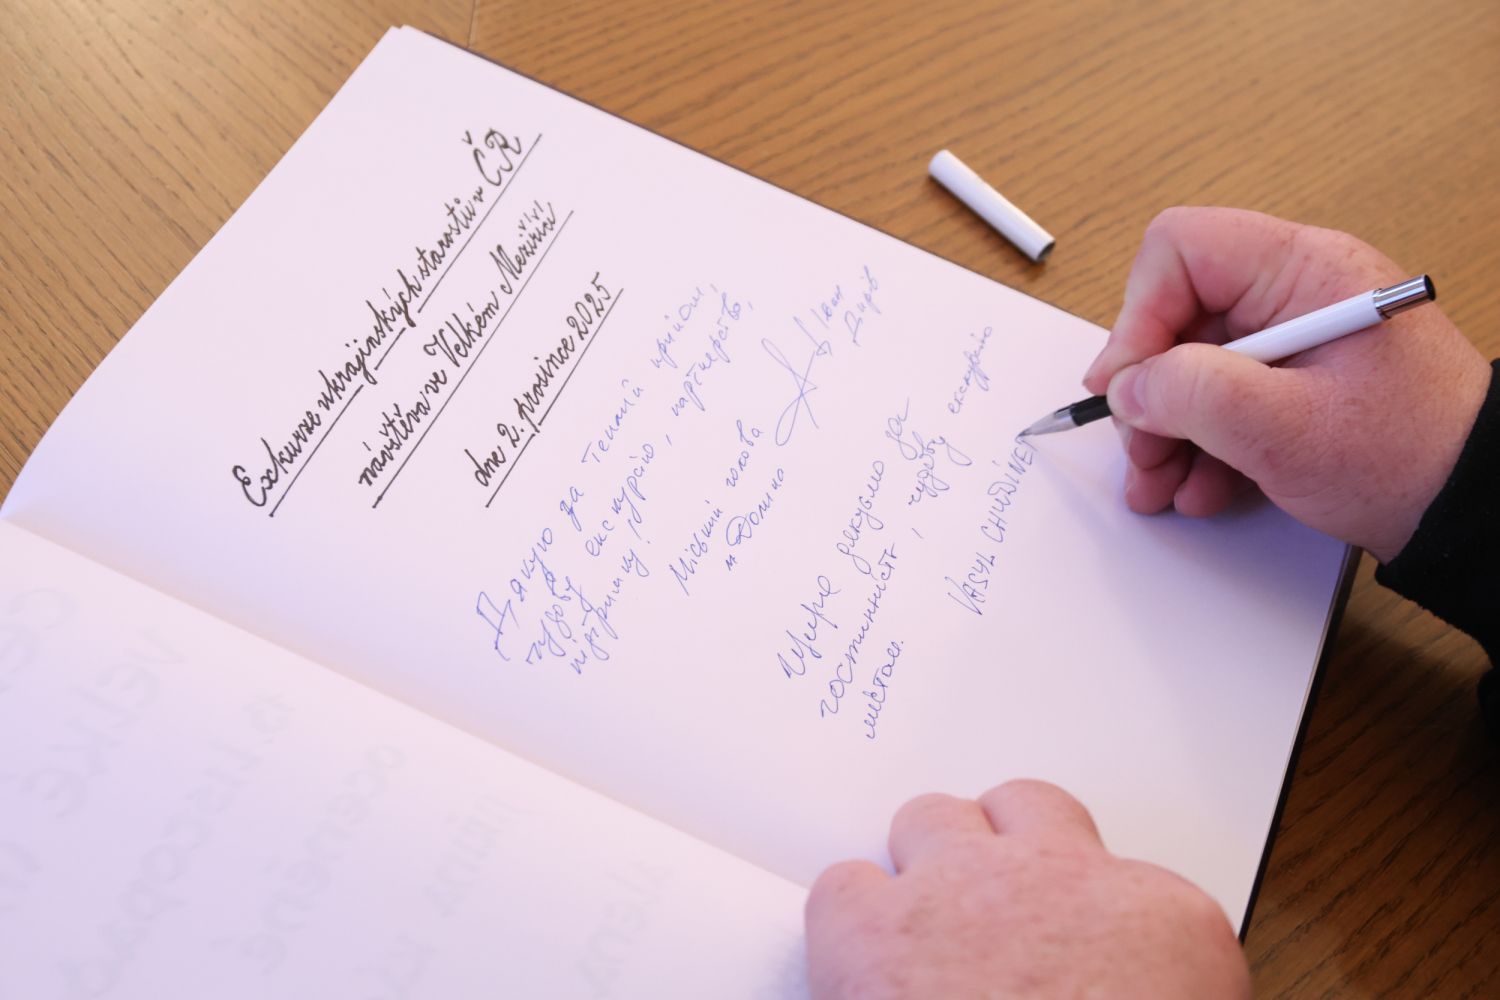 Exkurze ukrajinských starostů v ČR
návštěva ve Velkém Meziříčí
dne 2. prosince 2025
Дякую за теплий прийом,
чудову екскурсію, партнерство,
підтримку!
Міський голова
м Долина
Іван
Дирів
Щиро дякуємо за
гостинність і чудову екскурсію
містом.
VASYL CHUDINE